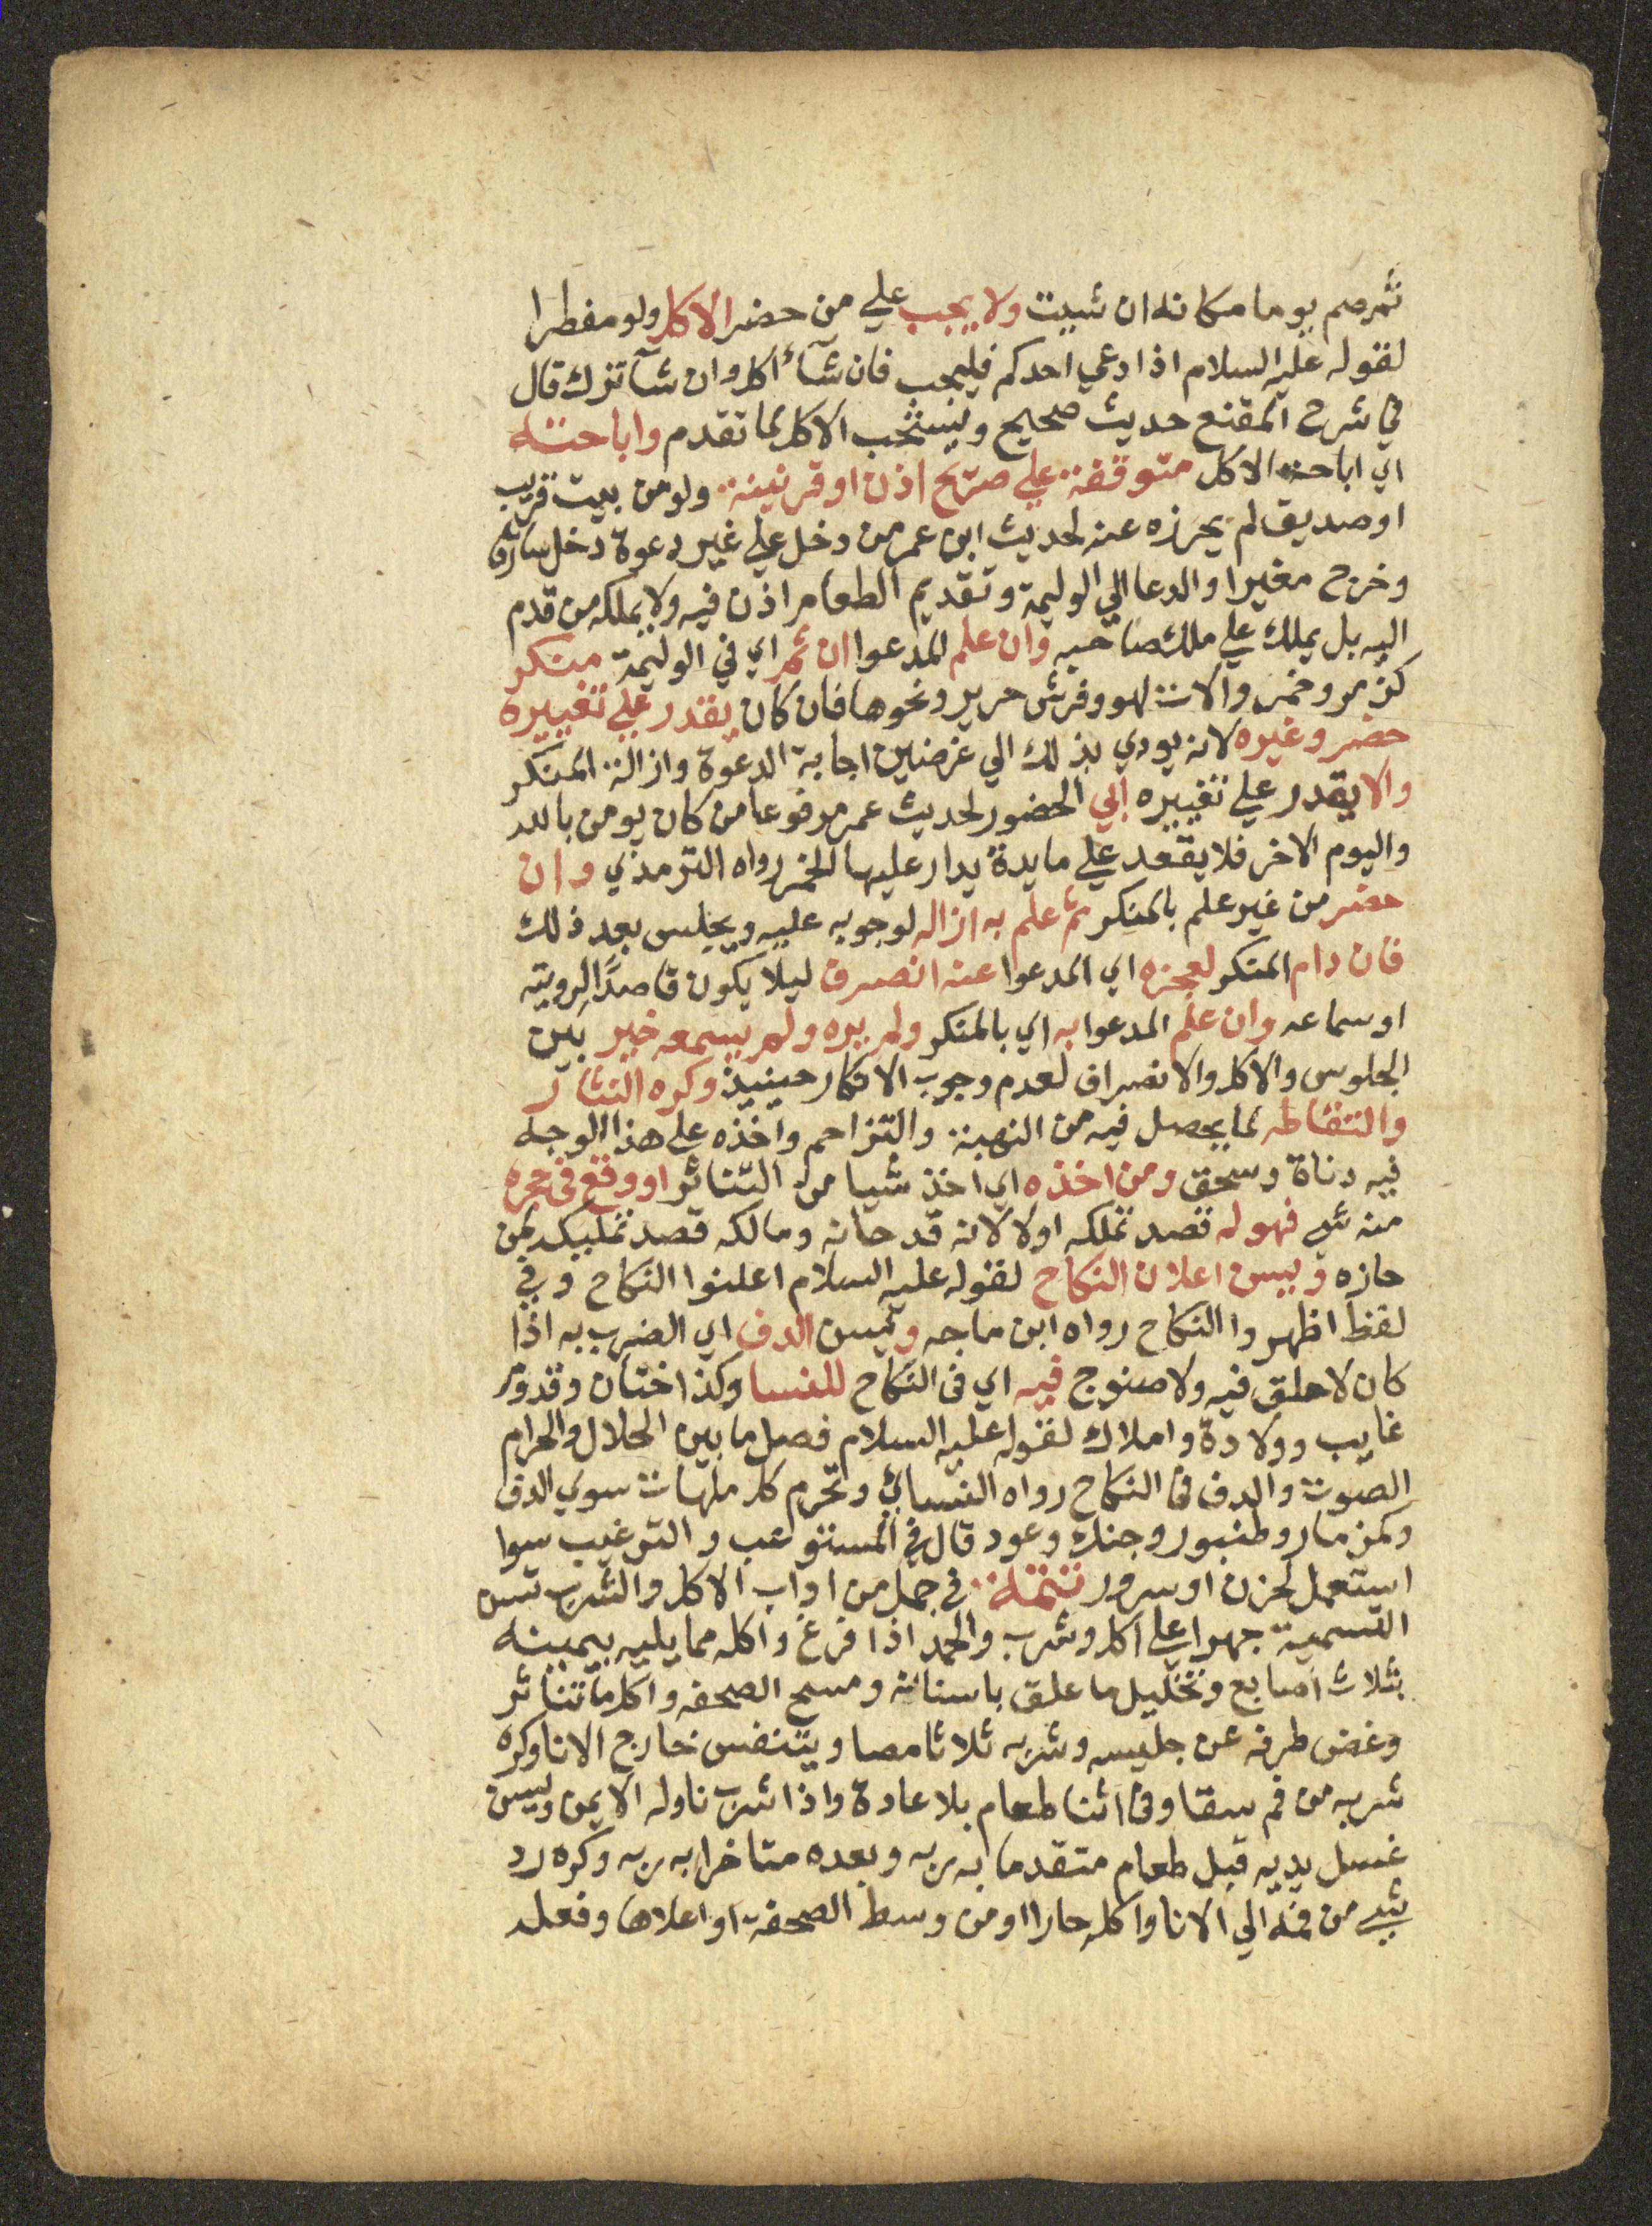 ثم صم يوما مكانه ان شيت ولا يجب علي من حضر الاكل ولو مفطرا
لقوله عليه السلام اذا دعي احدكم فليجب فان شآء اكل وان شآ ترك قال
في شرح المقنع حديث صحيح ويستحب الاكل لما تقدم واباحته
اي اباحة الاكل متوقفة علي صريح اذن او قرينة ولو من بيت قريب
او صديق لم يحرزه عنه لحديث ابن عمر من دخل علي غير دعوة دخل سارقا
وخرج مغيرا والدعا الي الوليمة وتقديم الطعام اذن فيه ولا يملكه من قدم
اليه بل يملك علي ملك صاحبه وان علم المدعوا ان ثم اي في الوليمة منكر
كزمر وخمر والات لهو وفرش حرير ونحوها فان كان يقدر علي تغييره
حضر وغيره لانه يودي بذلك الي غرضين اجابة الدعوة وازالة المنكر
والا يقدر علي تغييره ابي الحضور لحديث عمر مرفوعا من كان يومن بالله
واليوم الاخر فلا يقعد علي مايدة يدار عليها الخمر رواه الترمذي وان
حضر من غير علم بالمنكر ثم علم به ازاله لوجوبه عليه ويجلس بعد ذلك
فان دام المنكر لعجزه اي المدعوا عنه انصرف ليلا يكون قاصدًا لرويته
او سماعه وان علم المدعوا به اي بالمنكر ولم يره ولم يسمعه خير بين
الجلوس والاكل والانصراف لعدم وجوب الانكار حينيذ وكره النثار
والتقاطه لما يحصل فيه من النهبة والتزاحم واخذه علي هذا الوجه
فيه دناة وسحق ومن اخذه اي اخذ شيا من التناثر او وقع في حجره
منه شي فهو له قصد تملكه اولا لانه قد حازه ومالكه قصد تمليكه لمن
حازه ويسن اعلان النكاح لقوله عليه السلام اعلنوا النكاح وفي
لفظ اظهروا النكاح رواه ابن ماجه ويسن الدف اي الضرب به اذا
كان لا حلق فيه ولا صنوج فيه اي في النكاح للنسا وكذا ختان وقدوم
غايب وولادة واملاك لقوله عليه السلام فصل ما بين الحلال والحرام
الصوت والدف في النكاح رواه النسائي وتحرم كل ملهات سوي الدف
وكمزمار وطنبور وجنك وعود قال في المستوعب والترغيب سوا
استعمل لحزن او سرور تتمة في جمل من اداب الاكل والشرب تسن
التسمية جهرا علي اكل وشرب والحمد اذا فرغ واكله مما يليه بيمينه
بثلاث اصابع وتخليل ما علق باسنانه ومسح الصحفه واكل ما تناثر
وغض طرفه عن جليسه وشربه ثلاثا مصا ويتنفس خارج الانا وكره
شربه من فم سقا وفي اثنا طعام بلا عادة واذا شرب ناوله الايمن ويسن
غسل يديه قبل طعام متقدما به ربه وبعده متاخرا به ربه وكره رد
شي من فمه الي الانا واكله حارا او من وسط الصحفة او اعلاها وفعله